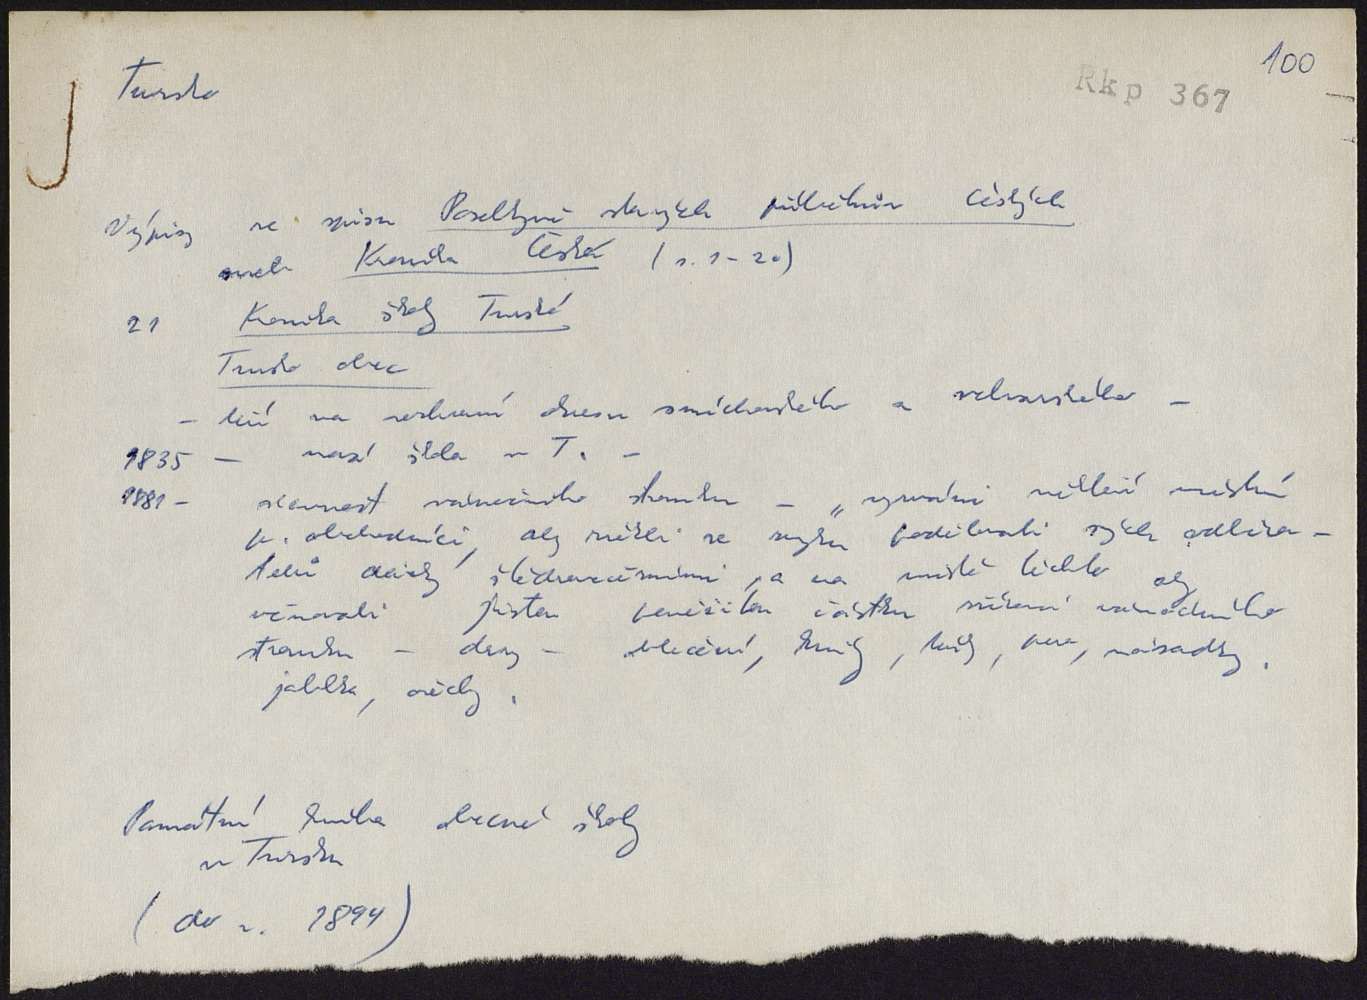 100
Rkp 367
Tursko
Výpisy ze spisu Poselkyně starých příběhův Českých
aneb Kronika Česká (s. 1-20)
21 Kronika školy Turské
Tursko obec
- leží na rozhraní okresu smíchovského a velvarského -
1835 - nová škola v T. -
1881 - slavnost vánočního stromku - „vyzváni někteří místní
p. obchodníci, aby zřekli se zvyku podělovati svých odběra-
telů dárky štědrovečerními, a na místě těchto aby
věnovali jistou peněžitou částku zřízení vánočního
stromku - dary - oblečení, knihy, tužky, pera, násadky,
jablka, ořechy.
Památní kniha obecné školy
v Tursku
(do r. 1894)